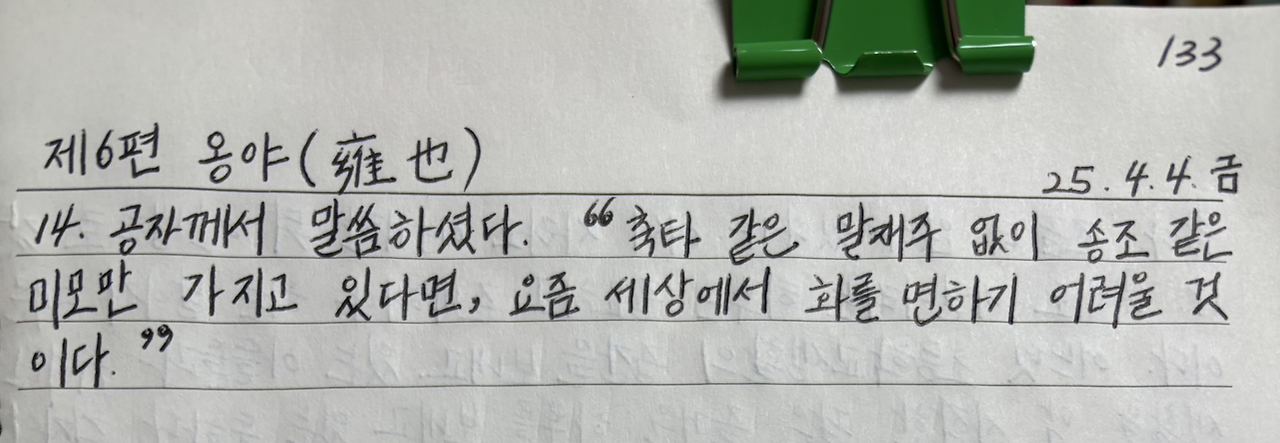 133
제6편 옹야(雍也)
25.4.4.금
14. 공자께서 말씀하셨다. “축타 같은 말재주 없이 송조 같은
미모만 가지고 있다면, 요즘 세상에서 화를 면하기 어려울 것
이다.”